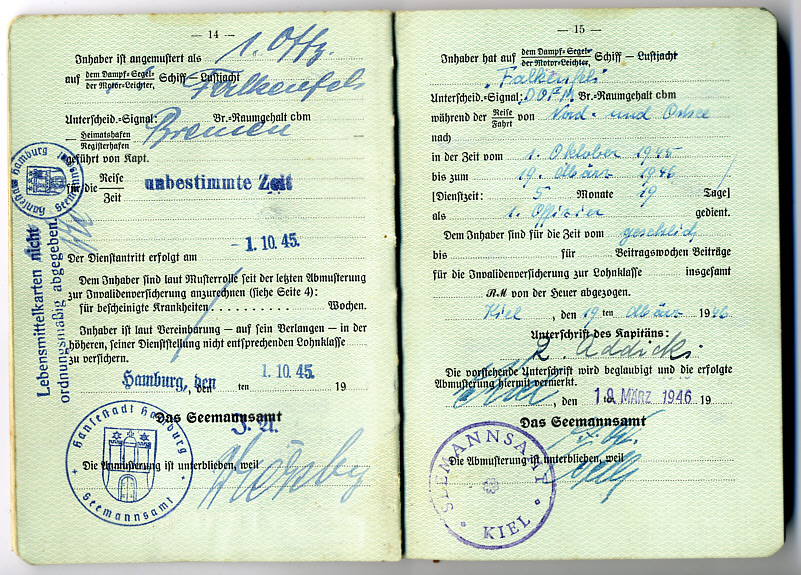 — 14 —
Inhaber ist angemustert als 1. Offz.
auf dem Dampf=Segel= Schiff — Lustjacht
der Motor=Leichter,
Falkenfels
Unterscheid.=Signal: Br.=Raumgehalt cbm
Heimatshafen Bremen
Registerhafen
geführt von Kapt.
für die Reise unbestimmte Zeit
Zeit
Der Dienstantritt erfolgt am - 1. 10. 45.
Dem Inhaber sind laut Musterrolle seit der letzten Abmusterung
zur Invalidenversicherung anzurechnen (siehe Seite 4):
für bescheinigte Krankheiten Wochen.
Inhaber ist laut Vereinbarung — auf sein Verlangen — in der
höheren, seiner Dienststellung nicht entsprechenden Lohnklasse
zu versichern.
Hamburg, den 1. 10. 45.
, den ten 19
Das Seemannsamt
J. A.
Die Abmusterung ist unterblieben, weil
Hansestadt Hamburg
Seemannsamt
Lebensmittelkarten nicht
ordnungsmäßig abgegeben.
— 15 —
Inhaber hat auf dem Dampf=Segel= Schiff — Lustjacht
der Motor=Leichter,
"Falkenfels"
Unterscheid.=Signal: DOFM Br.=Raumgehalt cbm
während der Reise von Nord- und Ostsee
Fahrt
nach
in der Zeit vom 1. Oktober 1945
bis zum 19. März 1946
[Dienstzeit: 5 Monate 19 Tage]
als 1. Offizier gedient.
Dem Inhaber sind für die Zeit vom
bis für Beitragswochen Beiträge
für die Invalidenversicherung zur Lohnklasse insgesamt
RM von der Heuer abgezogen.
Kiel, den 19 ten März 1946
Unterschrift des Kapitäns:
Addicks
Die vorstehende Unterschrift wird beglaubigt und die erfolgte
Abmusterung hiermit vermerkt.
Kiel, den ten 19. MÄRZ 1946 19
Das Seemannsamt
Die Abmusterung ist unterblieben, weil
SEEMANNSAMT
KIEL